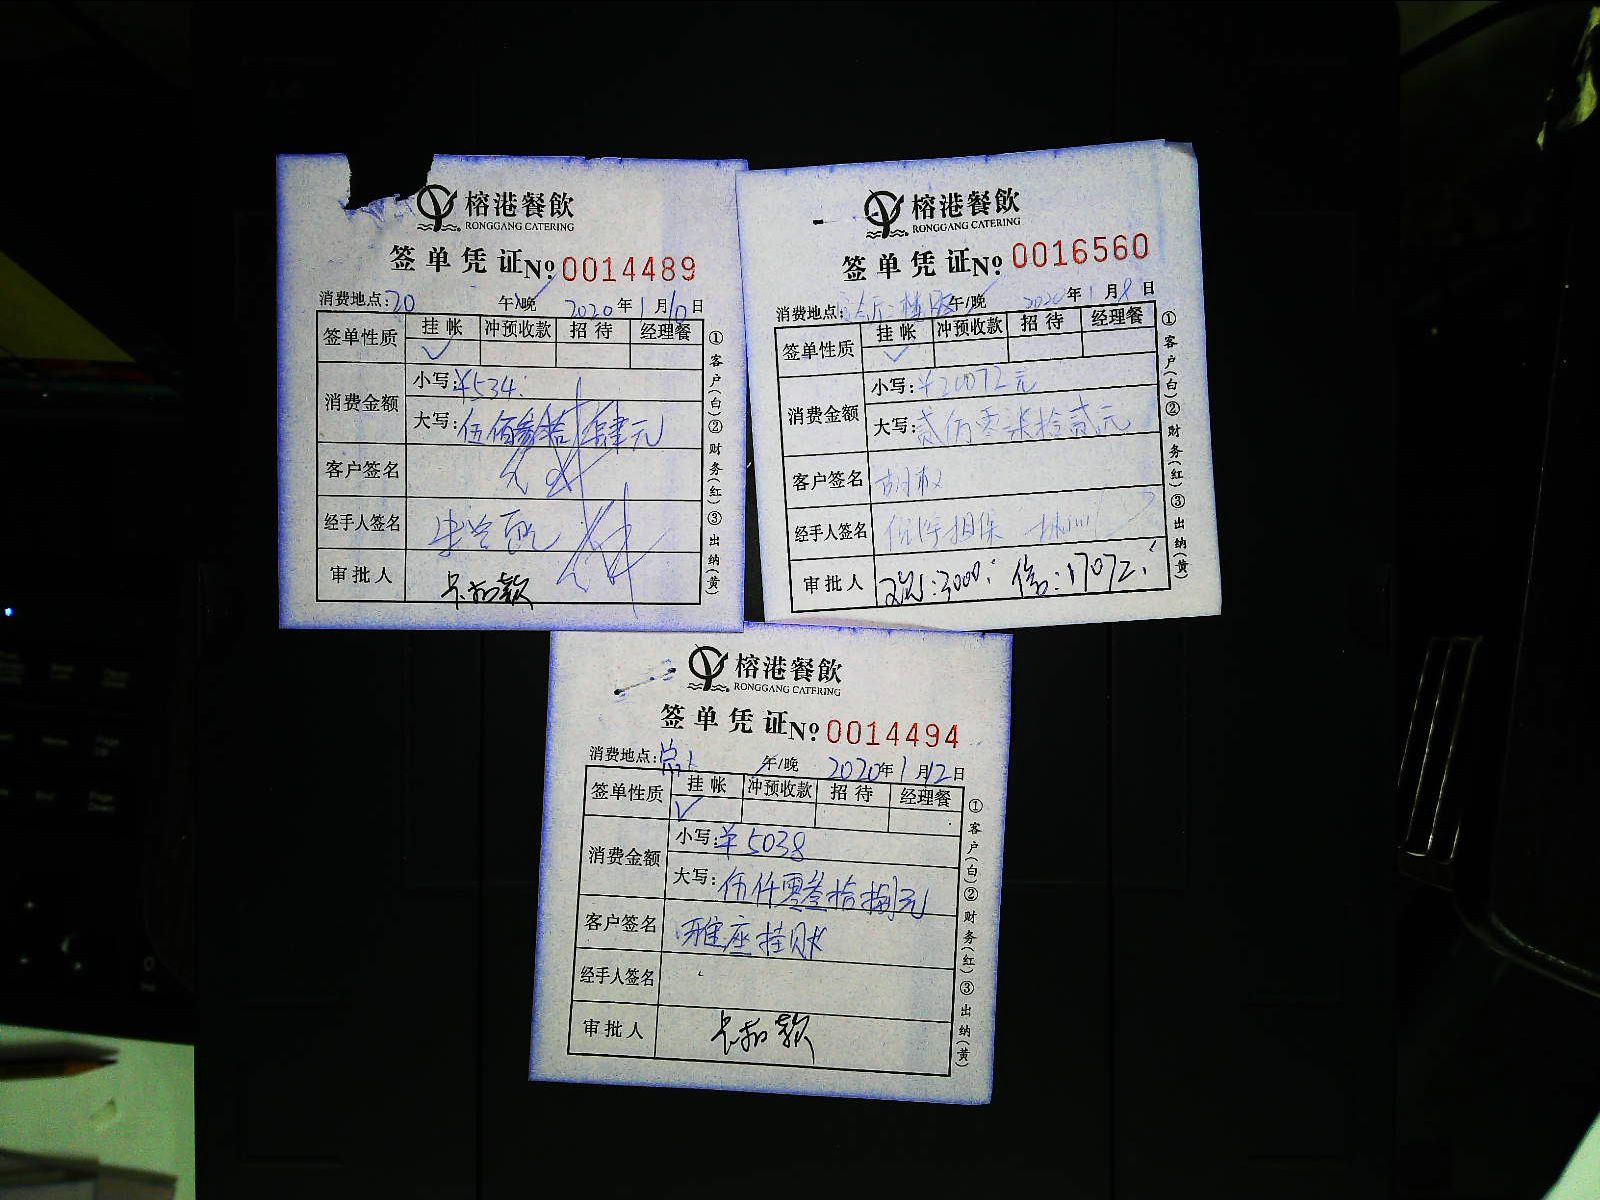 榕港餐飲
RONGGANG CATERING
签单凭证 No 0014489
消费地点:20 午/晚 2020年1月10日
签单性质 挂帐 冲预收款 招待 经理餐
✓
消费金额 小写:¥534.
大写:伍佰叁拾肆元
客户签名
经手人签名
审批人 卡扣款
①客户(白)②财务(红)③出纳(黄)
榕港餐飲
RONGGANG CATERING
签单凭证 No 0016560
消费地点: 午/晚 2020年1月8日
签单性质 挂帐 冲预收款 招待 经理餐
✓
消费金额 小写:¥20072元
大写:贰万零柒拾贰元
客户签名
经手人签名 担保
审批人 :3000. :17072.
①客户(白)②财务(红)③出纳(黄)
榕港餐飲
RONGGANG CATERING
签单凭证 No 0014494
消费地点: 午/晚 2020年1月12日
签单性质 挂帐 冲预收款 招待 经理餐
✓
消费金额 小写:¥5038
大写:伍仟零叁拾捌元
客户签名 雅座挂账
经手人签名
审批人 卡扣款
①客户(白)②财务(红)③出纳(黄)